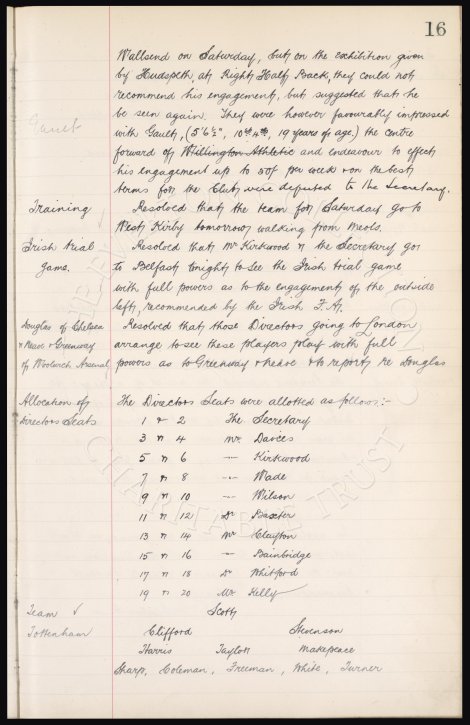 16
Wallsend on Saturday, but on the exhibition given
by Hudspeth, at Right Half Back, they could not
recommend his engagement, but suggested that he
be seen again. They were however favourably impressed
Gault
with Gault, (5'6½", 10st 4lb, 19 years of age.) the centre
forward of Willington Athletic and endeavour to effect
his engagement up to 50/- per week & on the best
terms for the Club, were deputed to the Secretary.
Training
Resolved that the team for Saturday go to
West Kirby tomorrow, walking from Meols.
Irish trial
game.
Resolved that Mr Kirkwood & the Secretary go
to Belfast tonight to see the Irish trial game
with full powers as to the engagement of the outside
left, recommended by the Irish F.A.
Douglas of Chelsea
& Neave & Greenway
of Woolwich Arsenal
Resolved that those Directors going to London
arrange to see these players play with full
powers as to Greenway & Neave & to report re Douglas
Allocation of
Directors Seats
The Directors Seats were allotted as follows:-
1 & 2 The Secretary
3 " 4 Mr Davies
5 " 6 — Kirkwood
7 " 8 — Wade
9 " 10 — Wilson
11 " 12 Dr Baxter
13 " 14 Mr Clayton
15 " 16 — Bainbridge
17 " 18 Dr Whitford
19 " 20 Mr Kelly
Team v
Tottenham
Scott
Clifford Stevenson
Harris Taylor Makepeace
Sharp, Coleman, Freeman, White, Turner
CHARITABLE TRUST